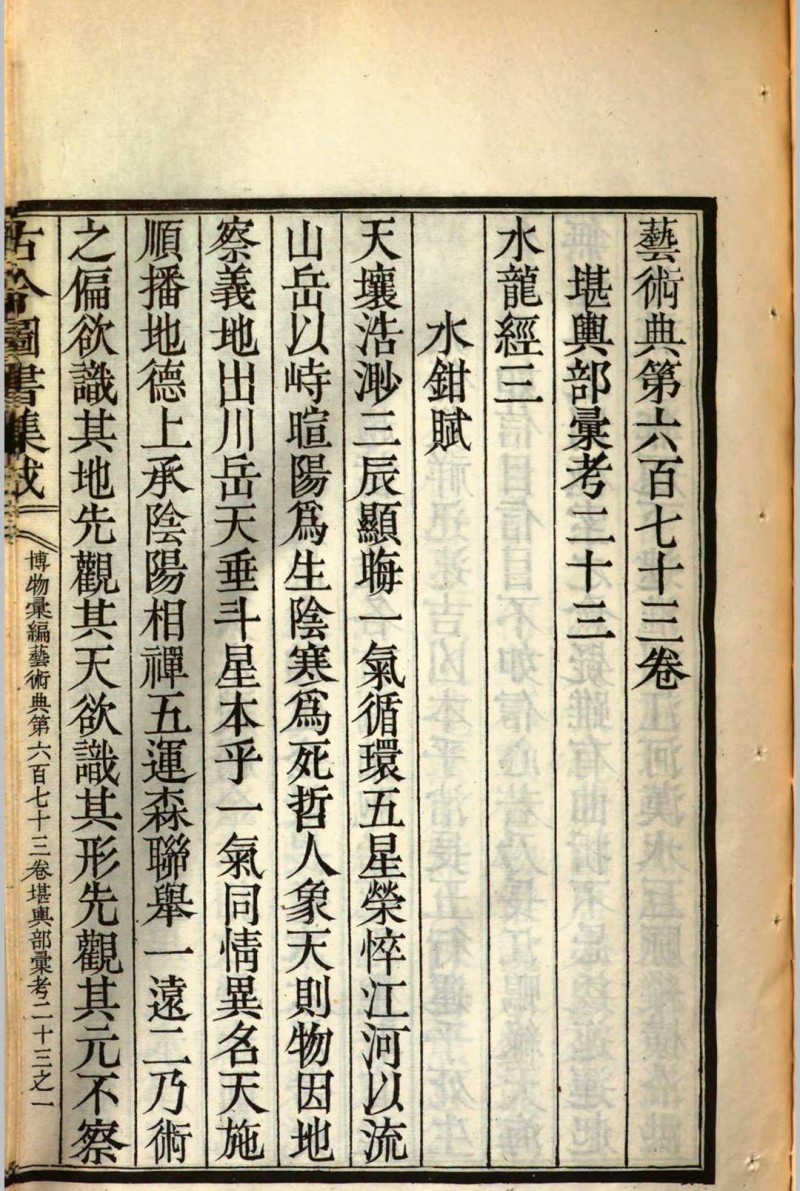 藝術典第六百七十三卷
堪輿部彙考二十三
水龍經三
水鉗賦
天壤浩渺三辰顯晦一氣循環五星榮悴江河以流
山岳以峙暄陽爲生陰寒爲死哲人象天則物因地
察義地出川岳天垂斗星本乎一氣同情異名天施
順播地德上承陰陽相禪五運森聯舉一遠二乃術
之偏欲識其地先觀其天欲識其形先觀其元不察
古今圖書集成
博物彙編藝術典第六百七十三卷堪輿部彙考二十三之一